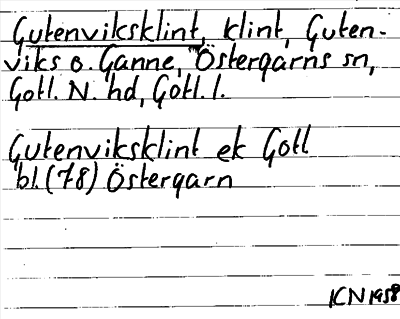 Gutenviksklint, klint, Guten-
viks o. Ganne, Östergarns sn,
Gotl. N. hd, Gotl. l.
Gutenviksklint ek Gotl
bl. (78) Östergarn
ICN 1958